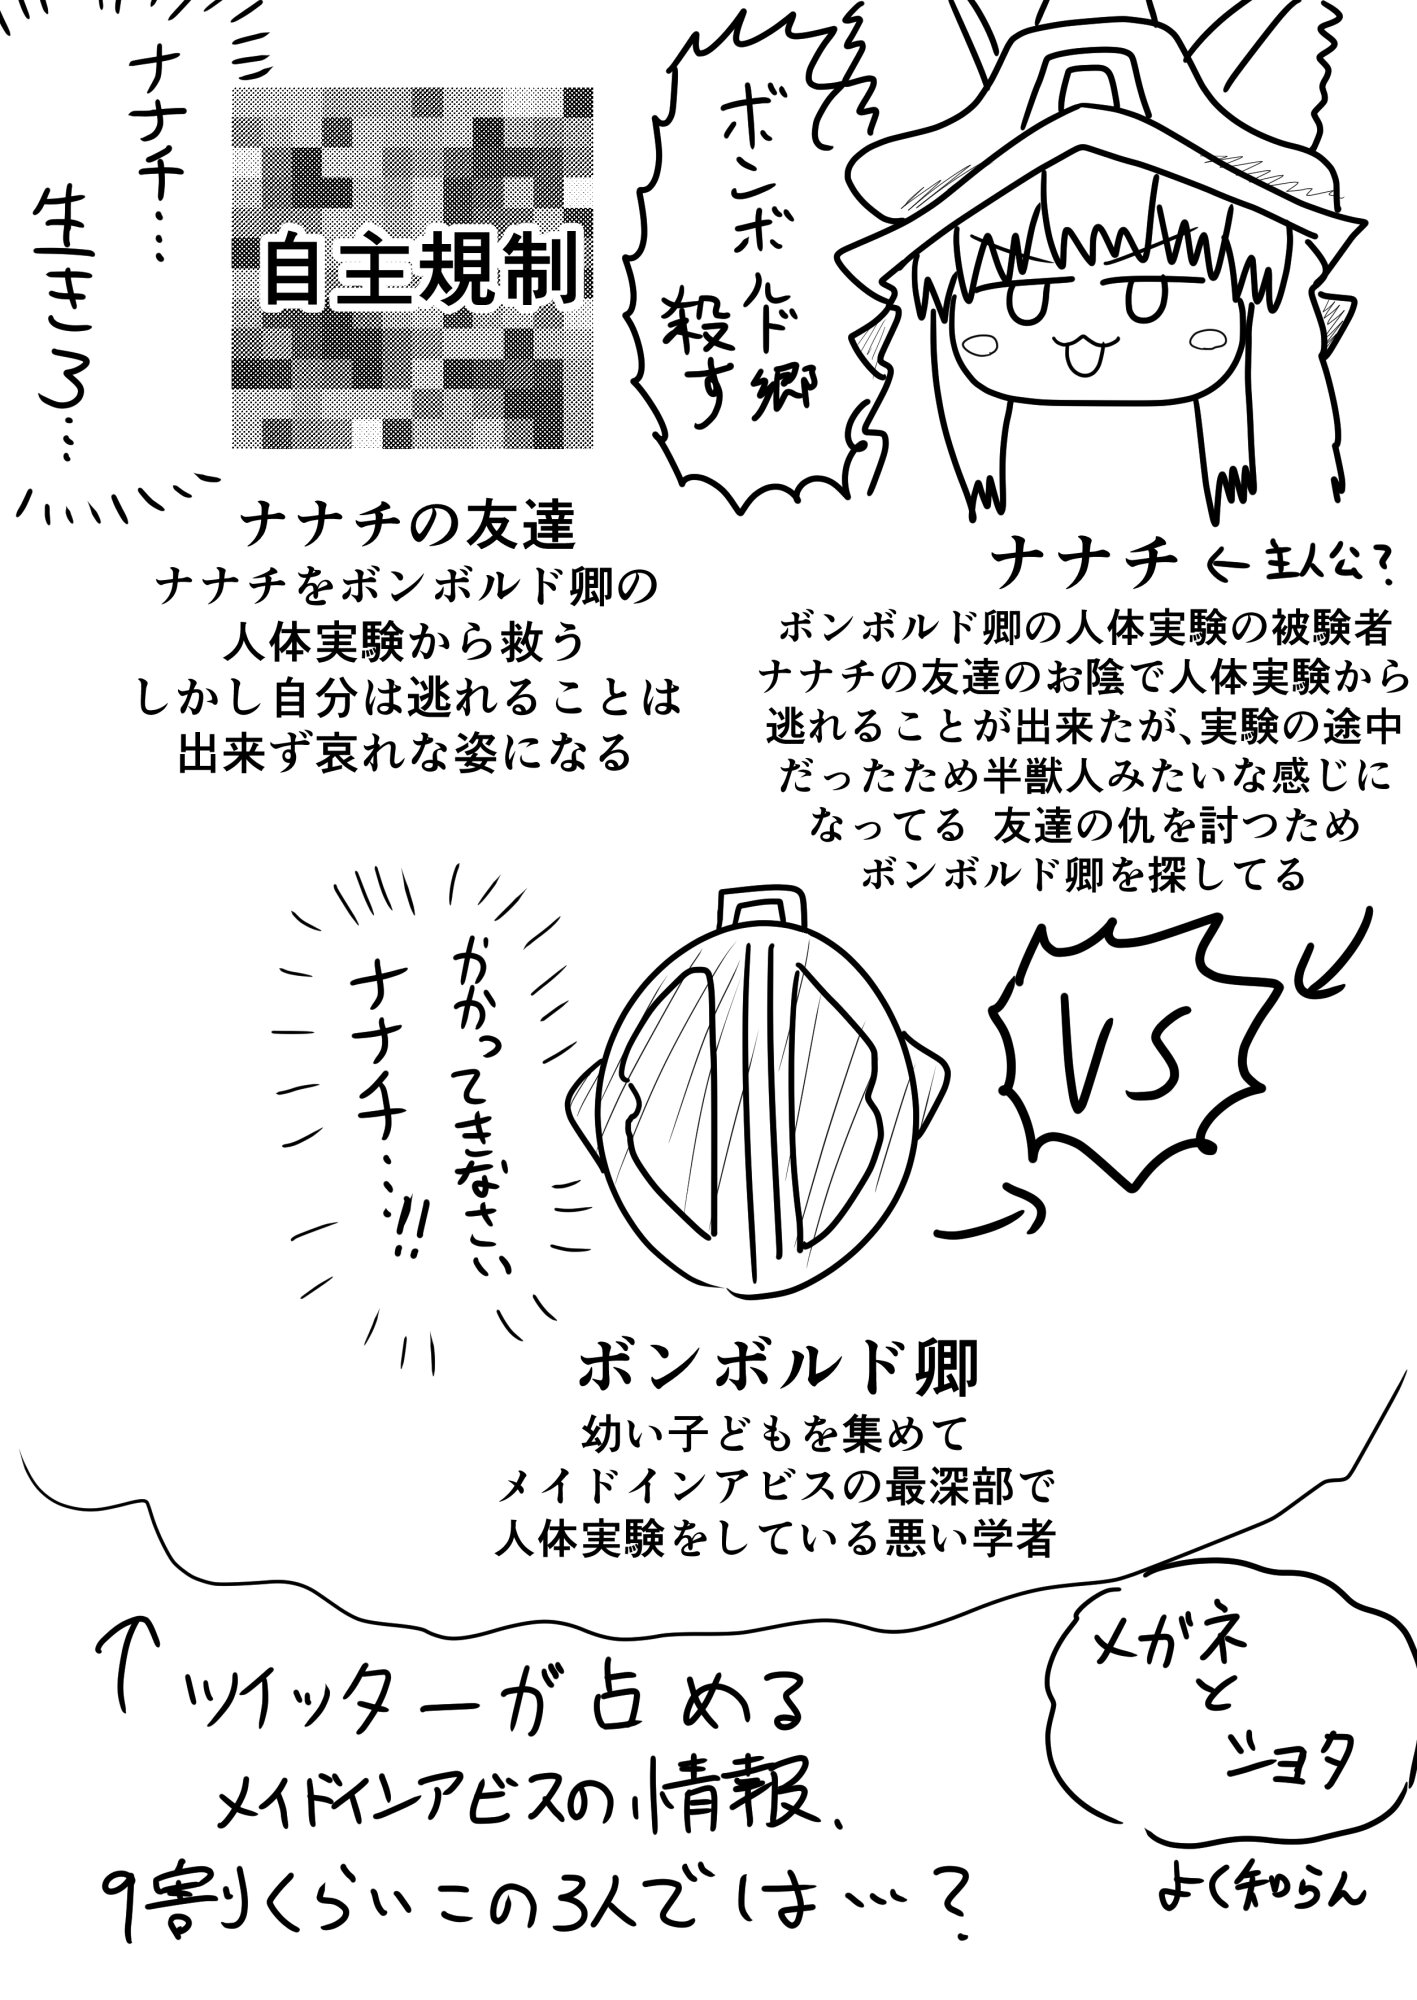 ボンボルド郷
殺す
ナナチ←主人公?
ボンボルド卿の人体実験の被験者
ナナチの友達のお陰で人体実験から
逃れることが出来たが、実験の途中
だったため半獣人みたいな感じに
なってる 友達の仇を討つため
ボンボルド卿を探してる
自主規制
ナナチ…
生きろ…
ナナチの友達
ナナチをボンボルド卿の
人体実験から救う
しかし自分は逃れることは
出来ず哀れな姿になる
VS
かかってきなさい
ナナチ…!!
ボンボルド卿
幼い子どもを集めて
メイドインアビスの最深部で
人体実験をしている悪い学者
↑ツイッターが占める
メイドインアビスの情報、
9割くらいこの3人では…?
メガネ
と
ショタ
よく知らん